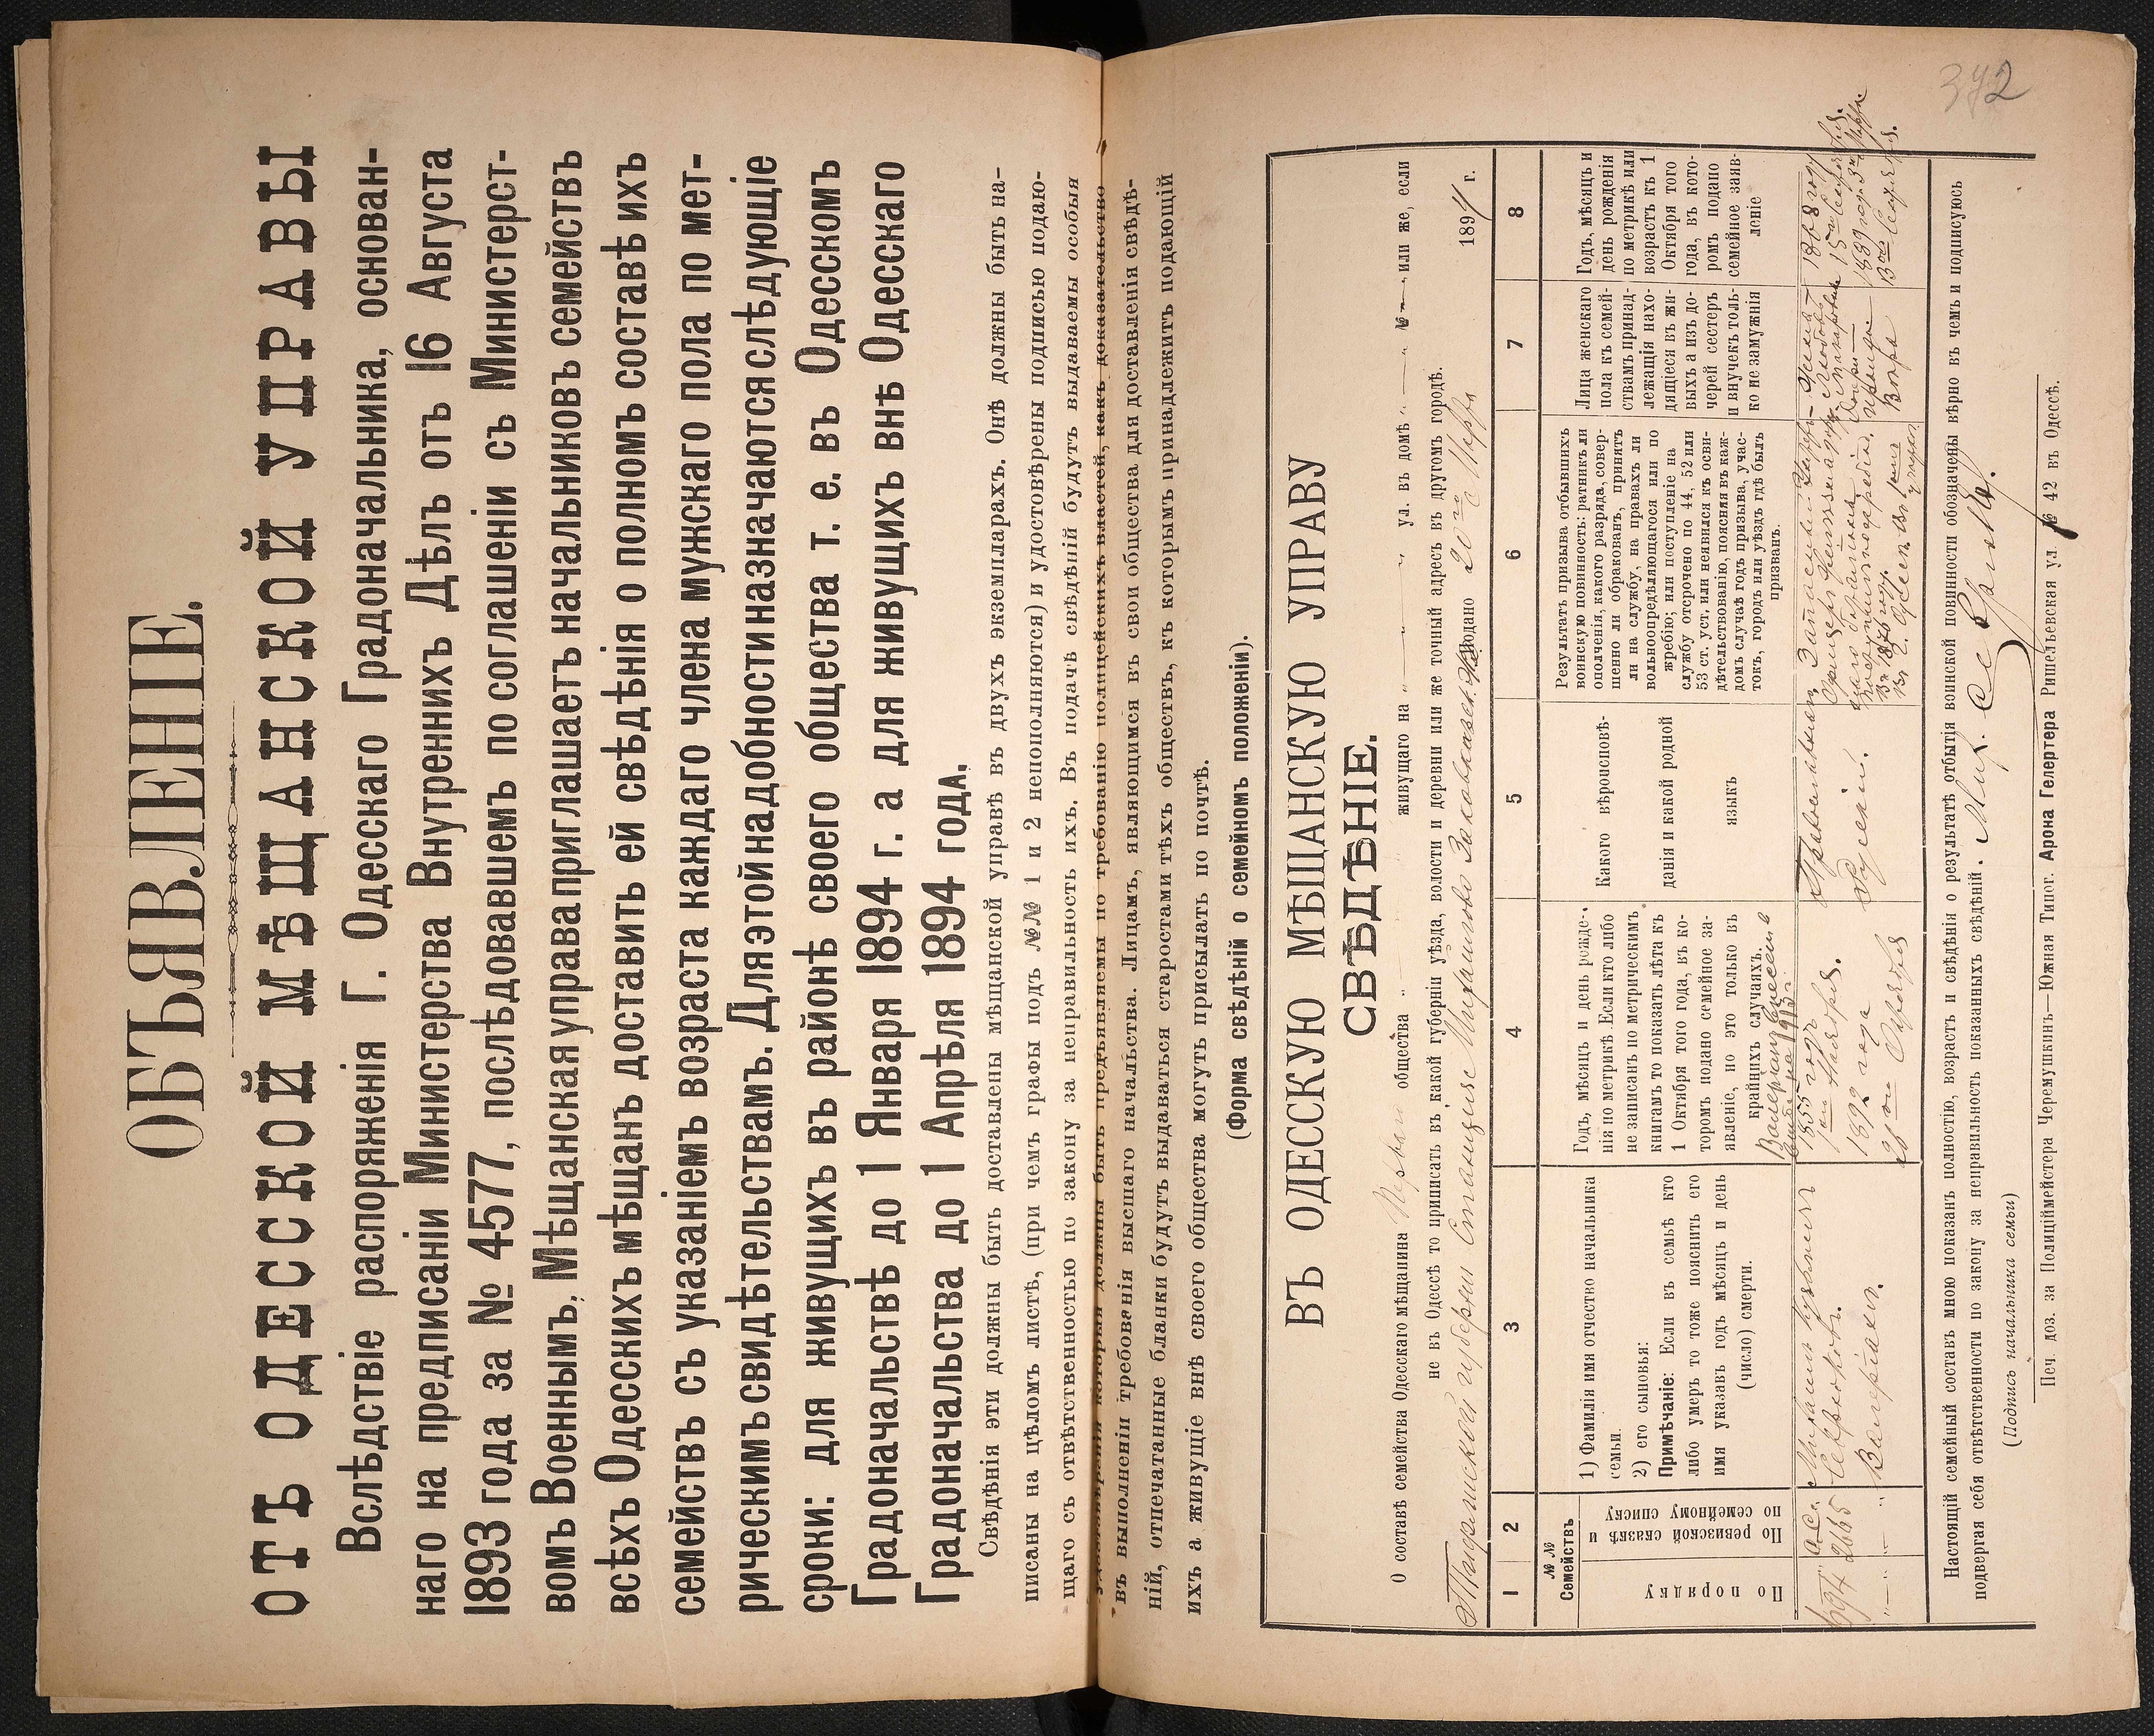 ОБЪЯВЛЕНІЕ.
ОТЪ ОДЕССКОЙ МѢЩАНСКОЙ УПРАВЫ
Вслѣдствіе распоряженія Г. Одесскаго Градоначальника, основан-
наго на предписаніи Министерства Внутреннихъ Дѣлъ отъ 16 Августа
1893 года за № 4577, послѣдовавшемъ по соглашеніи съ Министерст-
вомъ Военнымъ, Мѣщанская управа приглашаетъ начальниковъ семействъ
всѣхъ Одесскихъ мѣщанъ доставить ей свѣдѣнія о полномъ составѣ ихъ
семействъ съ указаніемъ возраста каждаго члена мужскаго пола по мет-
рическимъ свидѣтельствамъ. Для этой надобности назначаются слѣдующіе
сроки: для живущихъ въ районѣ своего общества т. е. въ Одесскомъ
Градоначальствѣ до 1 Января 1894 г. а для живущихъ внѣ Одесскаго
Градоначальства до 1 Апрѣля 1894 года.
Свѣдѣнія эти должны быть доставлены мѣщанской управѣ въ двухъ экземпларахъ. Онѣ должны быть на-
писаны на цѣломъ листѣ, (при чемъ графы подъ №№ 1 и 2 непополняются) и удостовѣрены подписью подаю-
щаго съ отвѣтственностью по закону за неправильность ихъ. Въ подачѣ свѣдѣній будутъ выдаваемы особыя
удостовѣренія которыя должны быть предъявляемы по требованію полицейскихъ властей, какъ доказательство
въ выполненіи требованія высшаго начальства. Лицамъ, являющимся въ свои общества для доставленія свѣдѣ-
ній, отпечатанные бланки будутъ выдаваться старостами тѣхъ обществъ, къ которымъ принадлежитъ подающій
ихъ а живущіе внѣ своего общества могутъ присылать по почтѣ.
(Форма свѣдѣній о семейномъ положеніи).
372
ВЪ ОДЕССКУЮ МѢЩАНСКУЮ УПРАВУ
СВѢДѢНІЕ.
О составѣ семейства Одесскаго мѣщанина Перваго общества живущаго на ул. въ домѣ № или же, если
не въ Одессѣ то приписать въ какой губерніи уѣзда, волости и деревни или же точный адресъ въ другомъ городѣ.
губерніи Станица Михайлово Подано 20го 1894 г.
1 2 3 4 5 6 7 8
№ №
Семействъ
По порядку
По ревизской сказкѣ и
по семейному списку
1) Фамилія имя отчество начальника
семьи.
2) его сыновья:
Примѣчаніе: Если въ семьѣ кто
либо умеръ то тоже пояснить его
имя указавъ годъ мѣсяцъ и день
(число) смерти.
Годъ, мѣсяцъ и день рожде-
нія по метрикѣ. Если кто либо
не записанъ по метрическимъ
книгамъ то показать лѣта къ
1 Октября того года, въ ко-
торомъ подано семейное за-
явленіе, но это только въ
крайнихъ случаяхъ.
Какого вѣроисповѣ-
данія и какой родной
языкъ
Результатъ призыва отбывшихъ
воинскую повинность: ратникъ ли
ополченія, какого разряда, совер-
шенно ли обракованъ, принятъ
ли на службу, на правахъ ли
вольноопредѣляющагося или по
жребію; или поступленіе на
службу отсрочено по 44, 52 или
53 ст. уст. или неявился къ осви-
дѣтельствованію, поясняя въ каж-
домъ случаѣ годъ призыва, учас-
токъ, городъ или уѣздъ гдѣ былъ
призванъ.
Лица женскаго
пола къ семей-
ствамъ принад-
лежащія нахо-
дящіеся въ жи-
выхъ а изъ до-
черей сестеръ
и внучекъ толь-
ко не замужнія
Годъ, мѣсяцъ и
день рожденія
по метрикѣ или
возрастъ къ 1
Октября того
года, въ кото-
ромъ подано
семейное заяв-
леніе
2665
Михаилъ
Валеріанъ.
1855 году
1892 года
Православнаго
Русскій.
Запасный
Жена
Дочери
Вѣра
1868 году
1889 году
Настоящій семейный составъ мною показанъ полностію, возрастъ и свѣдѣнія о результатѣ отбытія воинской повинности обозначены вѣрно въ чемъ и подписуюсь
подвергая себя отвѣтственности по закону за неправильность показанныхъ свѣдѣній. Мих.
(Подпись начальника семьи)
Печ. доз. за Полиціймейстера Черемушкинъ—Южная Типог. Арона Гелертера Ришельевская ул. № 42 въ Одессѣ.